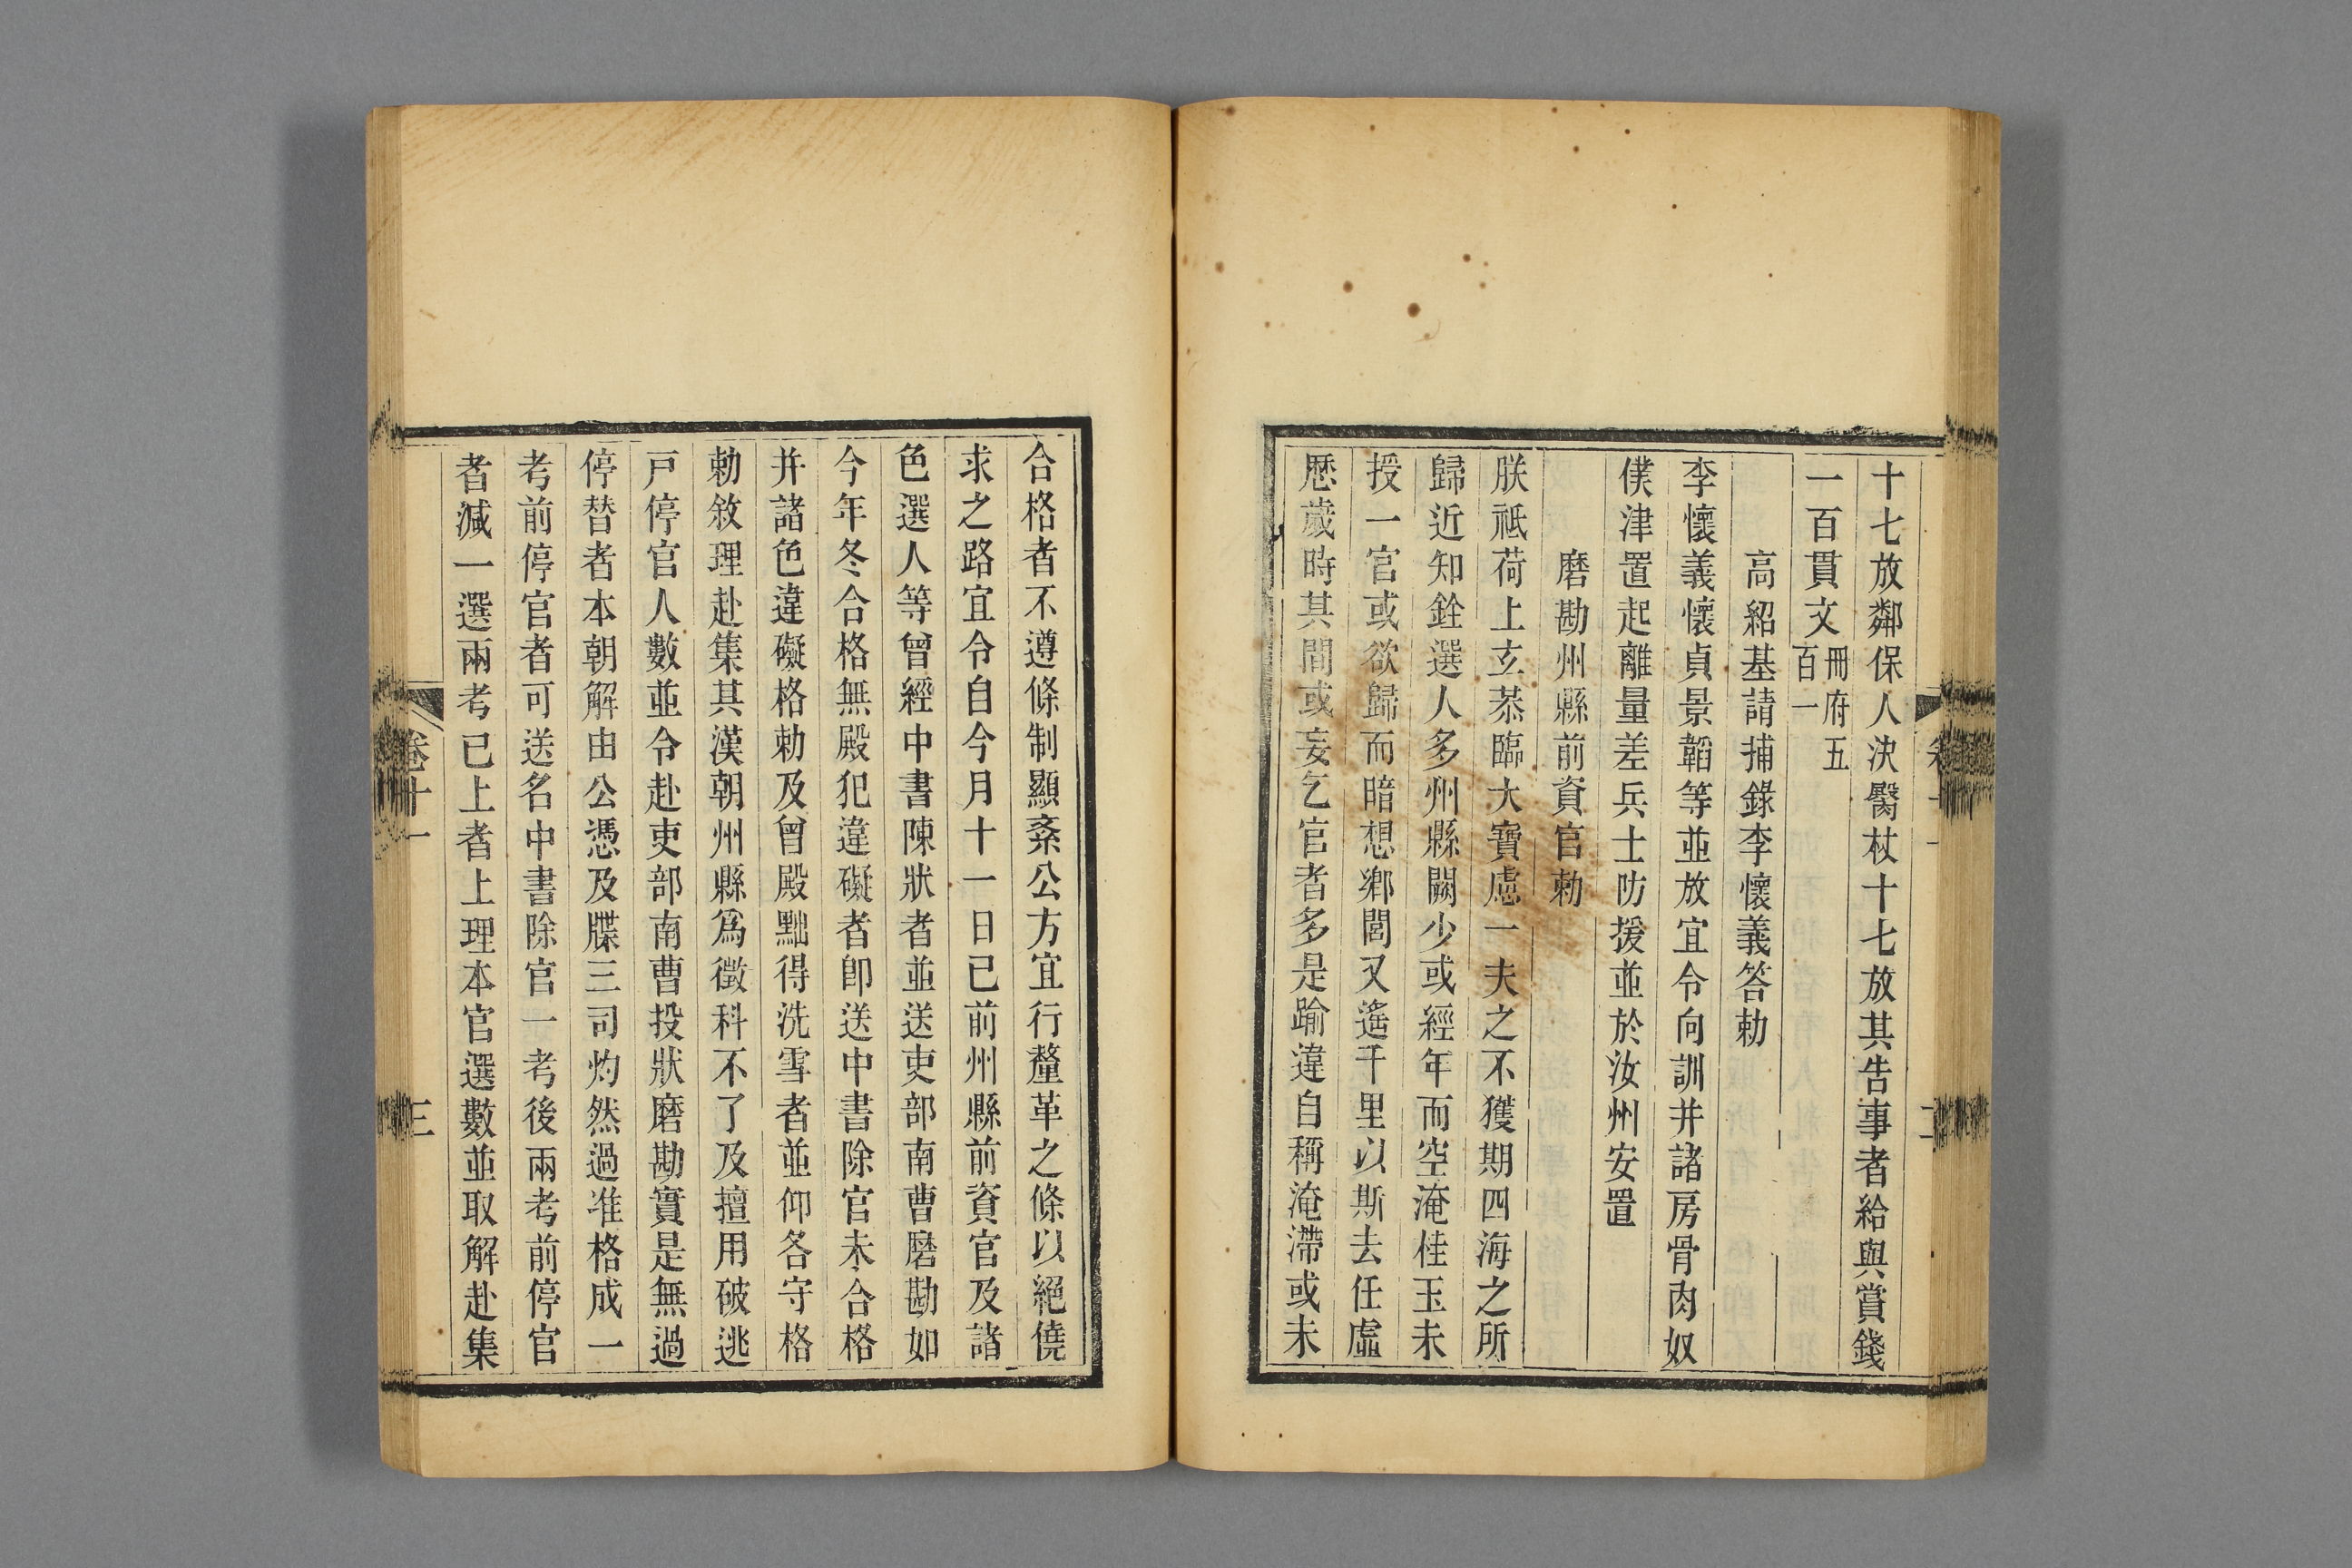 十七放鄰保人決臀杖十七放其告事者給與賞錢
一百貫文冊府五百一
高紹基請捕錄李懷義答勅
李懷義懷貞景韜等並放宜令向訓并諸房骨肉奴
僕津置起離量差兵士防援並於汝州安置
磨勘州縣前資官勅
朕祗荷上玄恭臨大寶慮一夫之不獲期四海之所
歸近知銓選人多州縣闕少或經年而空淹桂玉未
授一官或欲歸而暗想鄉閭又遙千里以斯去任虛
歷歲時其間或妄乞官者多是踰違自稱淹滯或未
合格者不遵條制顯紊公方宜行釐革之條以絕僥
求之路宜令自今月十一日已前州縣前資官及諸
色選人等曾經中書陳狀者並送吏部南曹磨勘如
今年冬合格無殿犯違礙者卽送中書除官未合格
并諸色違礙格勅及曾殿黜得洗雪者並仰各守格
勅敘理赴集其漢朝州縣爲徵科不了及擅用破逃
戸停官人數並令赴吏部南曹投狀磨勘實是無過
停替者本朝解由公憑及牒三司灼然過准格成一
考前停官者可送名中書除官一考後兩考前停官
者減一選兩考已上者上理本官選數並取解赴集
卷十一
三